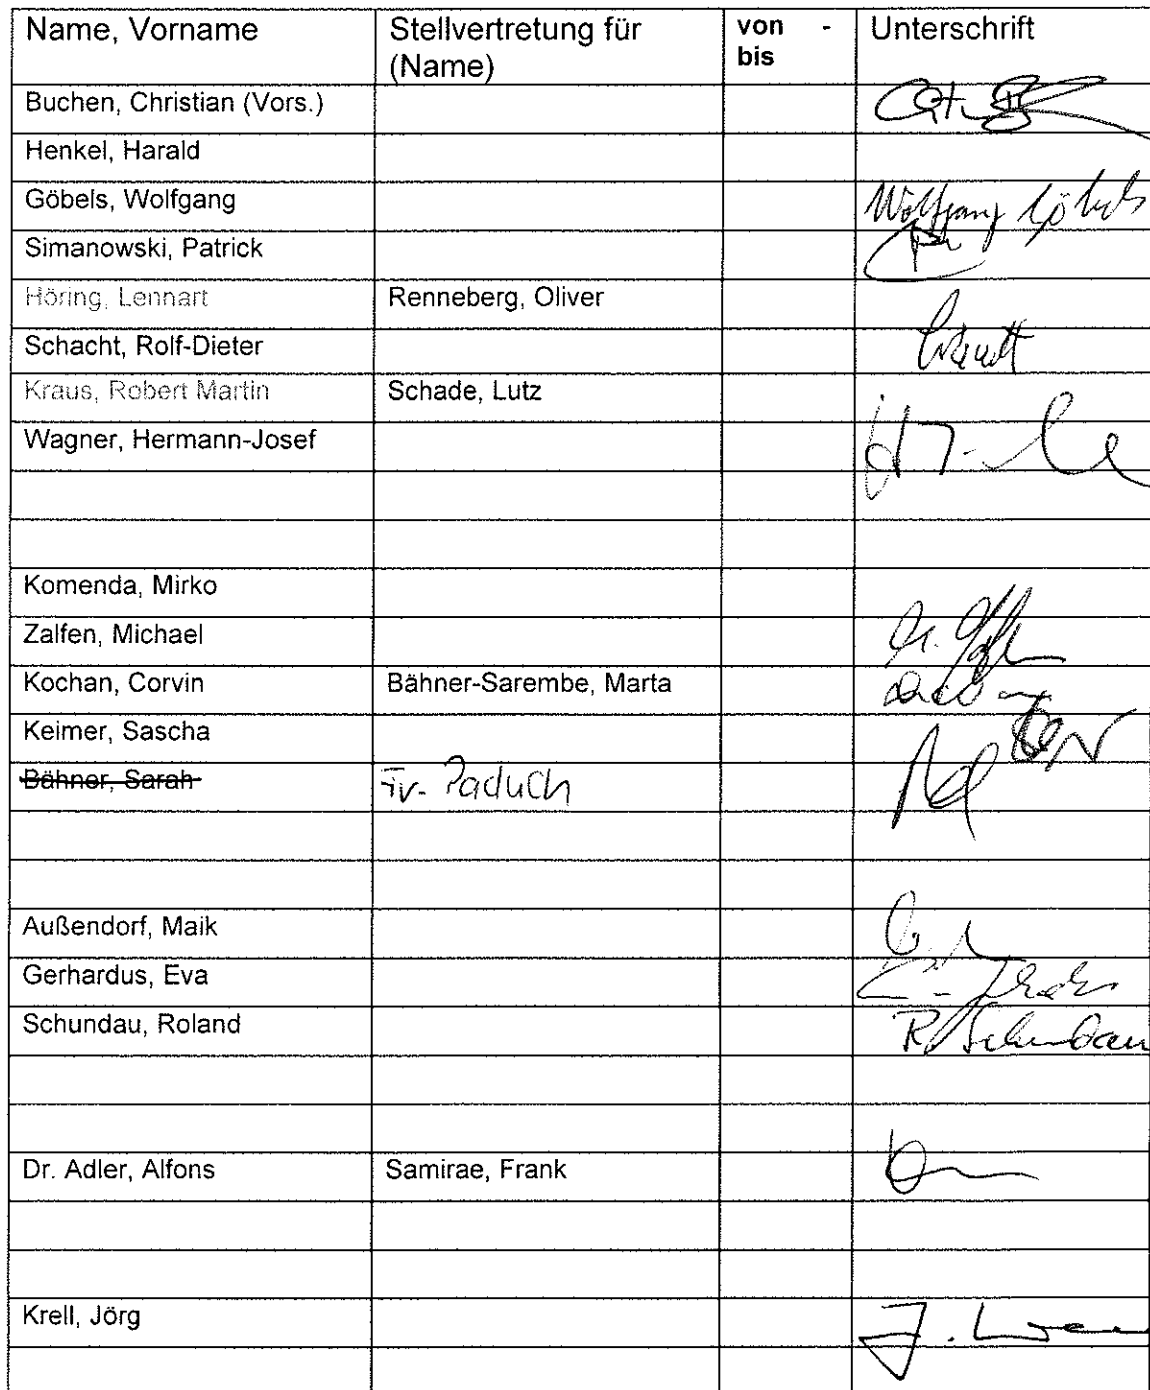 Name, Vorname Stellvertretung für (Name) von - bis Unterschrift
Buchen, Christian (Vors.)
Henkel, Harald
Göbels, Wolfgang Wolfgang Göbels
Simanowski, Patrick
Höring, Lennart Renneberg, Oliver
Schacht, Rolf-Dieter
Kraus, Robert Martin Schade, Lutz
Wagner, Hermann-Josef
Komenda, Mirko
Zalfen, Michael
Kochan, Corvin Bähner-Sarembe, Marta
Keimer, Sascha
Bähner, Sarah Fr. Paduch
Außendorf, Maik
Gerhardus, Eva
Schundau, Roland R. Schundau
Dr. Adler, Alfons Samirae, Frank
Krell, Jörg